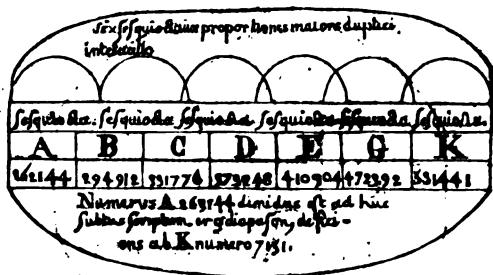 sex sesquioctauæ proportiones maiores duplici
interuallo
sesquiocta. sesquiocta sesquiocta sesquiocta sesquiocta sesquiocta.
A B C D E G K
262144 294912 331774 373248 410904 472392 331441
Numerus A 263144 dimidius est ad huc
subtus scriptum ergo diapason, defici-
ens ab K numero 7151.